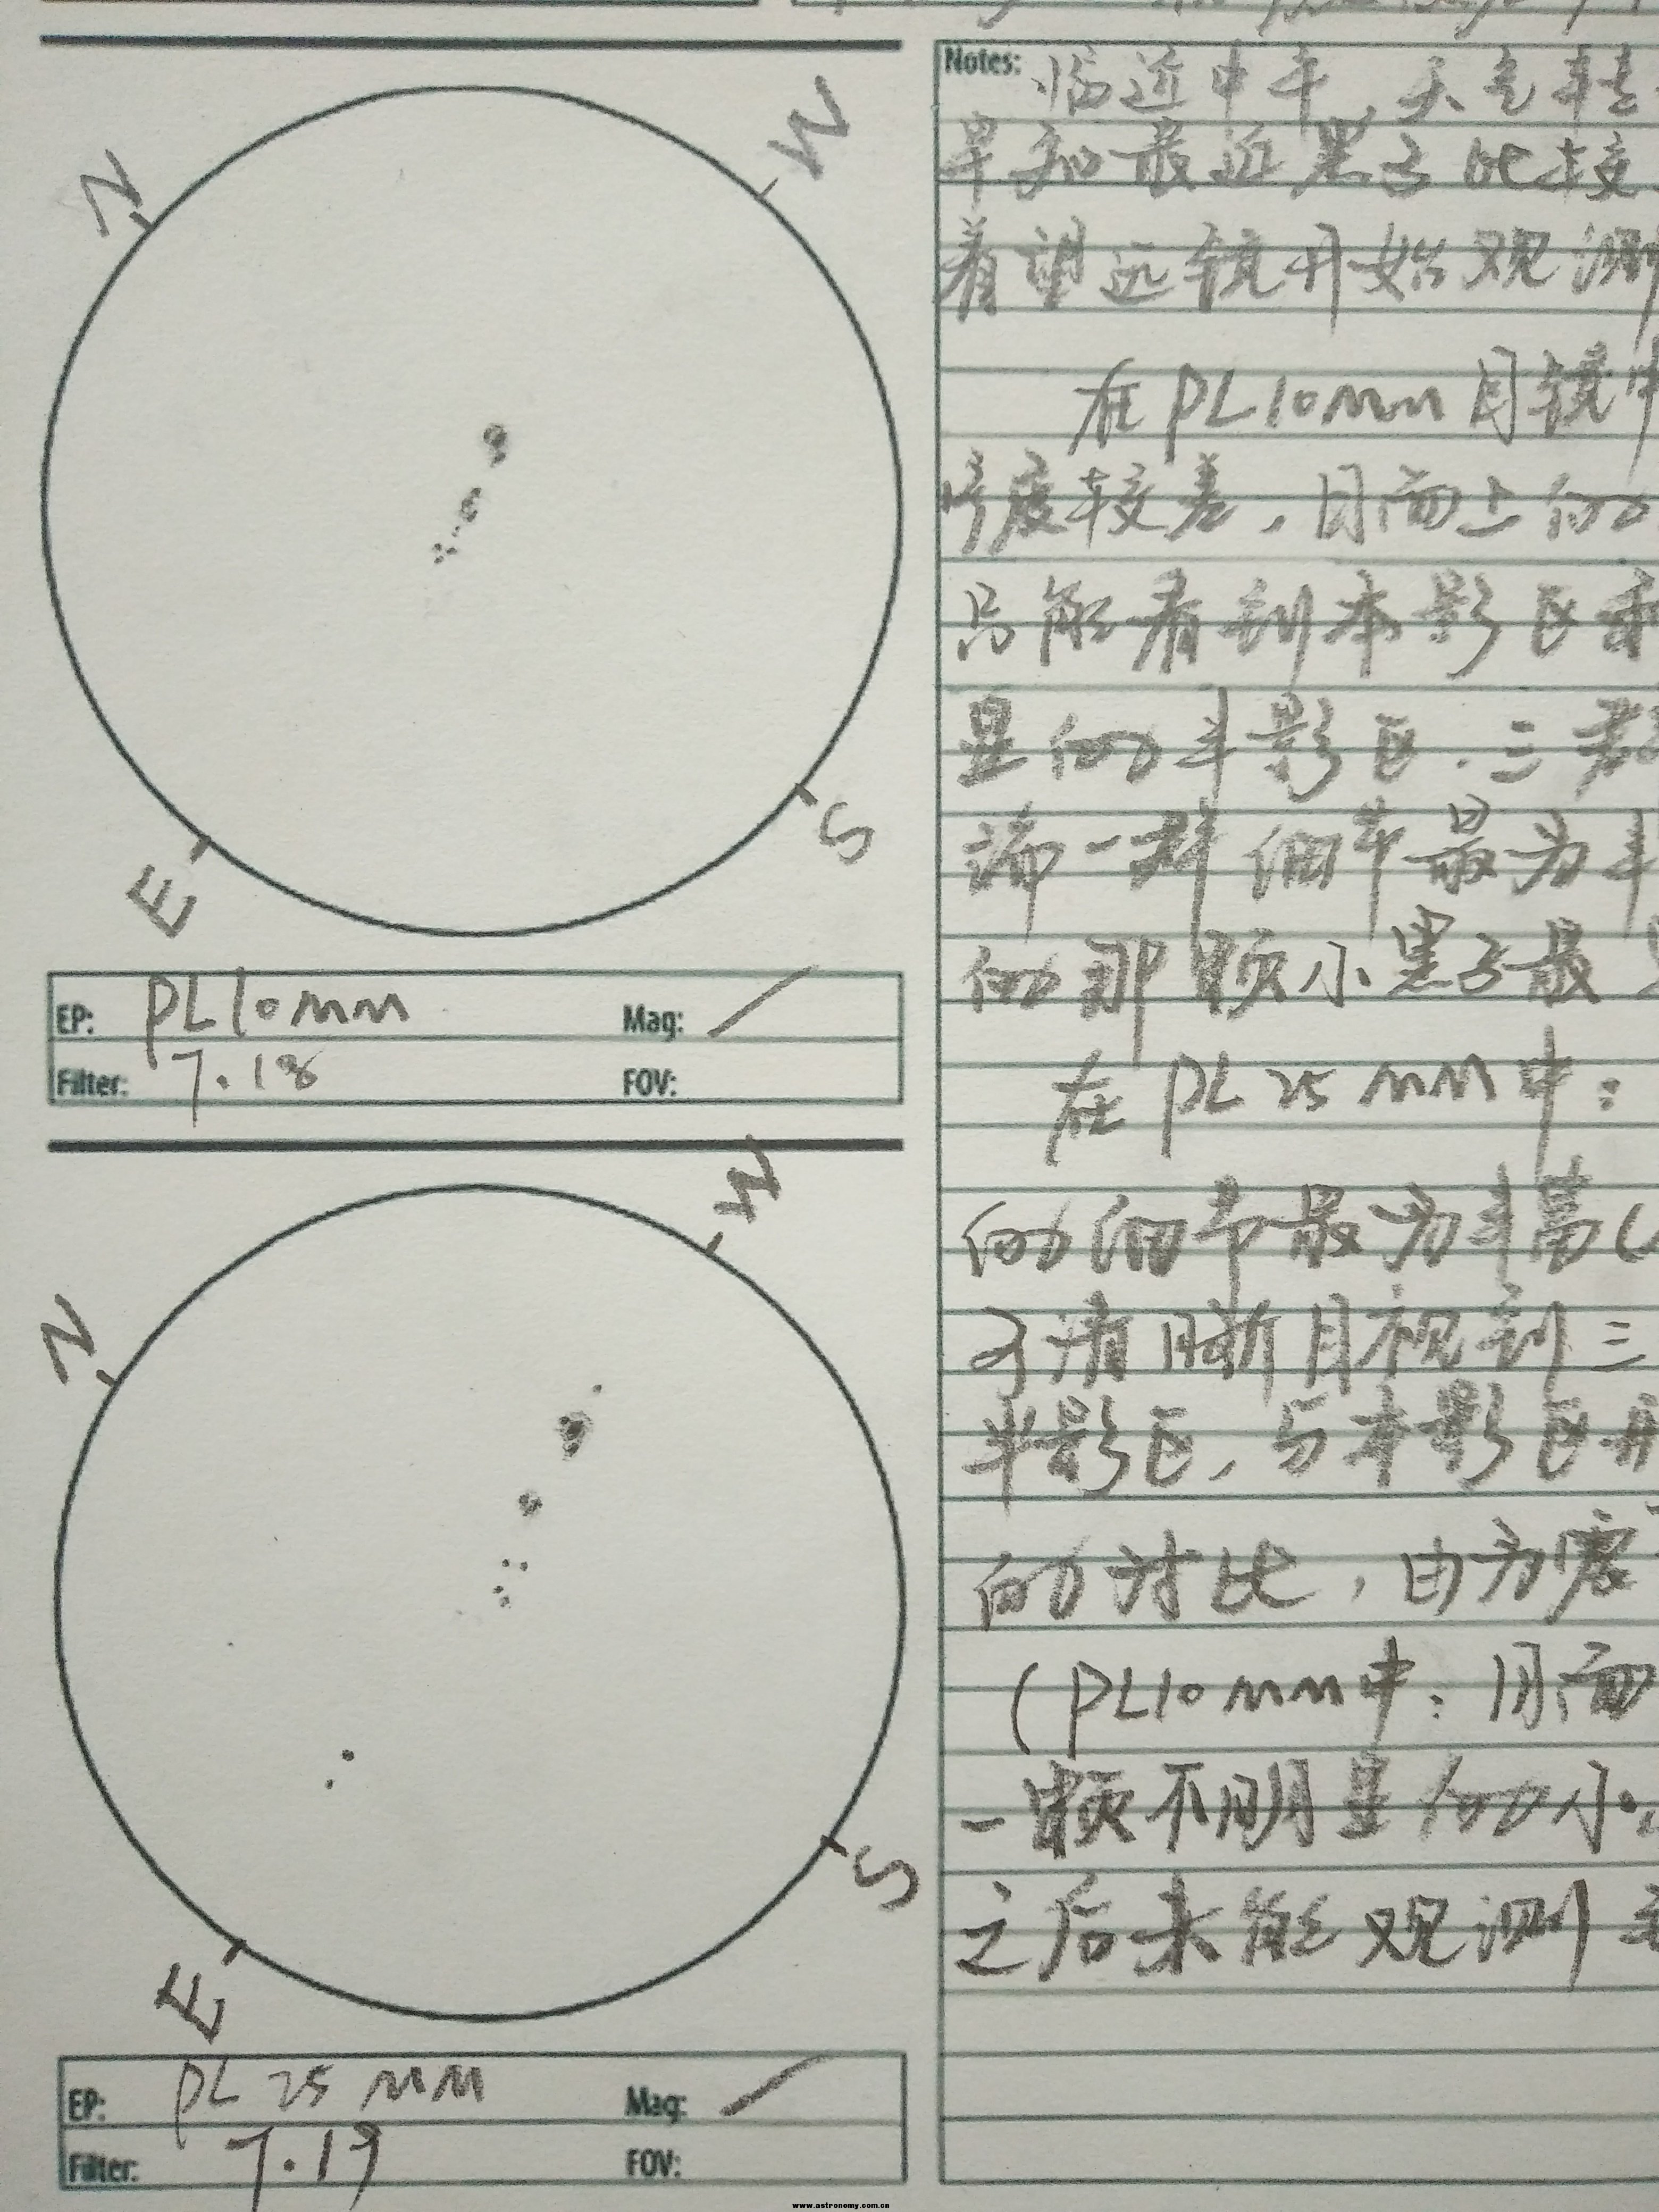 W
N
S
E
EP: PL 10mm Mag: /
Filter: 7.18 FOV:
W
N
S
E
EP: PL 25mm Mag: /
Filter: 7.19 FOV:
Notes: 临近中午,天气转
早知最近黑子比较
着望远镜开始观测
在PL10mm目镜中
度较差,日面上的
只能看到本影区和
显的半影区.三群
端一群细节最为丰
的那颗小黑子最
在PL25mm中:
的细节最为丰富(
可清晰目视到三
半影区,与本影区
的对比,由于
(PL10mm中:日面
一颗不明显的小
之后未能观测
www.astronomy.com.cn